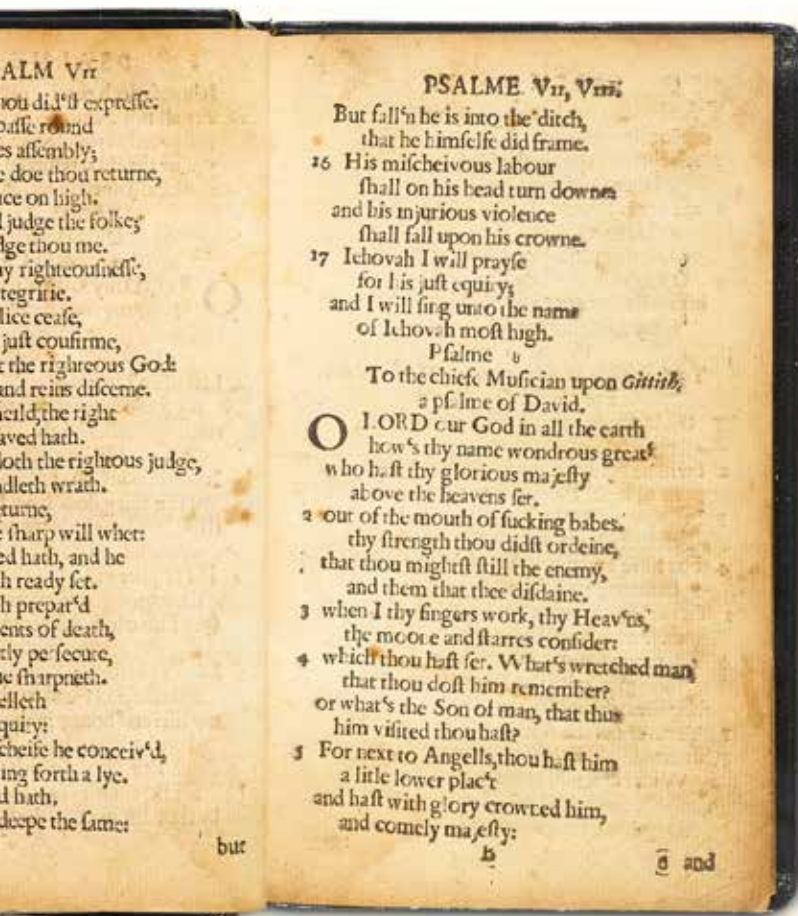 ALM VII
hou did'ſt expreſſe.
paſſe round
es aſſembly;
e doe thou returne,
nce on high.
l judge the folke;
dge thou me.
ny righteouſneſſe,
tegritie.
lice ceaſe,
juſt coufirme,
t the righreous God:
and reins diſcerne.
heild,the right
aved hath.
loth the rightous judge,
ndleth wrath.
eturne,
e ſharp will whet:
ed hath, and he
h ready ſet.
h prepar'd
ents of death,
tly perſecute,
he ſharpneth.
elleth
quity:
cheife he conceiv'd,
ing forth a lye.
d hath,
deepe the ſame:
but
PSALME VII, VIII.
But fall'n he is into the ditch,
that he himſelfe did frame.
16 His miſcheivous labour
ſhall on his head turn downe;
and his injurious violence
ſhall fall upon his crowne.
17 Iehovah I will prayſe
for his juſt equity;
and I will ſing unto the name
of Iehovah moſt high.
Pſalme 8
To the chiefe Muſician upon Gittith,
a pſalme of David.
O LORD our God in all the earth
how's thy name wondrous great!
who haſt thy glorious majeſty
above the heavens ſet.
2 out of the mouth of ſucking babes,
thy ſtrength thou didſt ordeine,
that thou mightſt ſtill the enemy,
and them that thee diſdaine.
3 when I thy fingers work, thy Heav'ns,
the moone and ſtarres conſider:
4 which thou haſt ſet. What's wretched man,
that thou doſt him remember?
or what's the Son of man, that thus
him viſited thou haſt?
5 For next to Angells,thou haſt him
a litle lower plac't
and haſt with glory crowned him,
and comely majeſty:
B
6 and